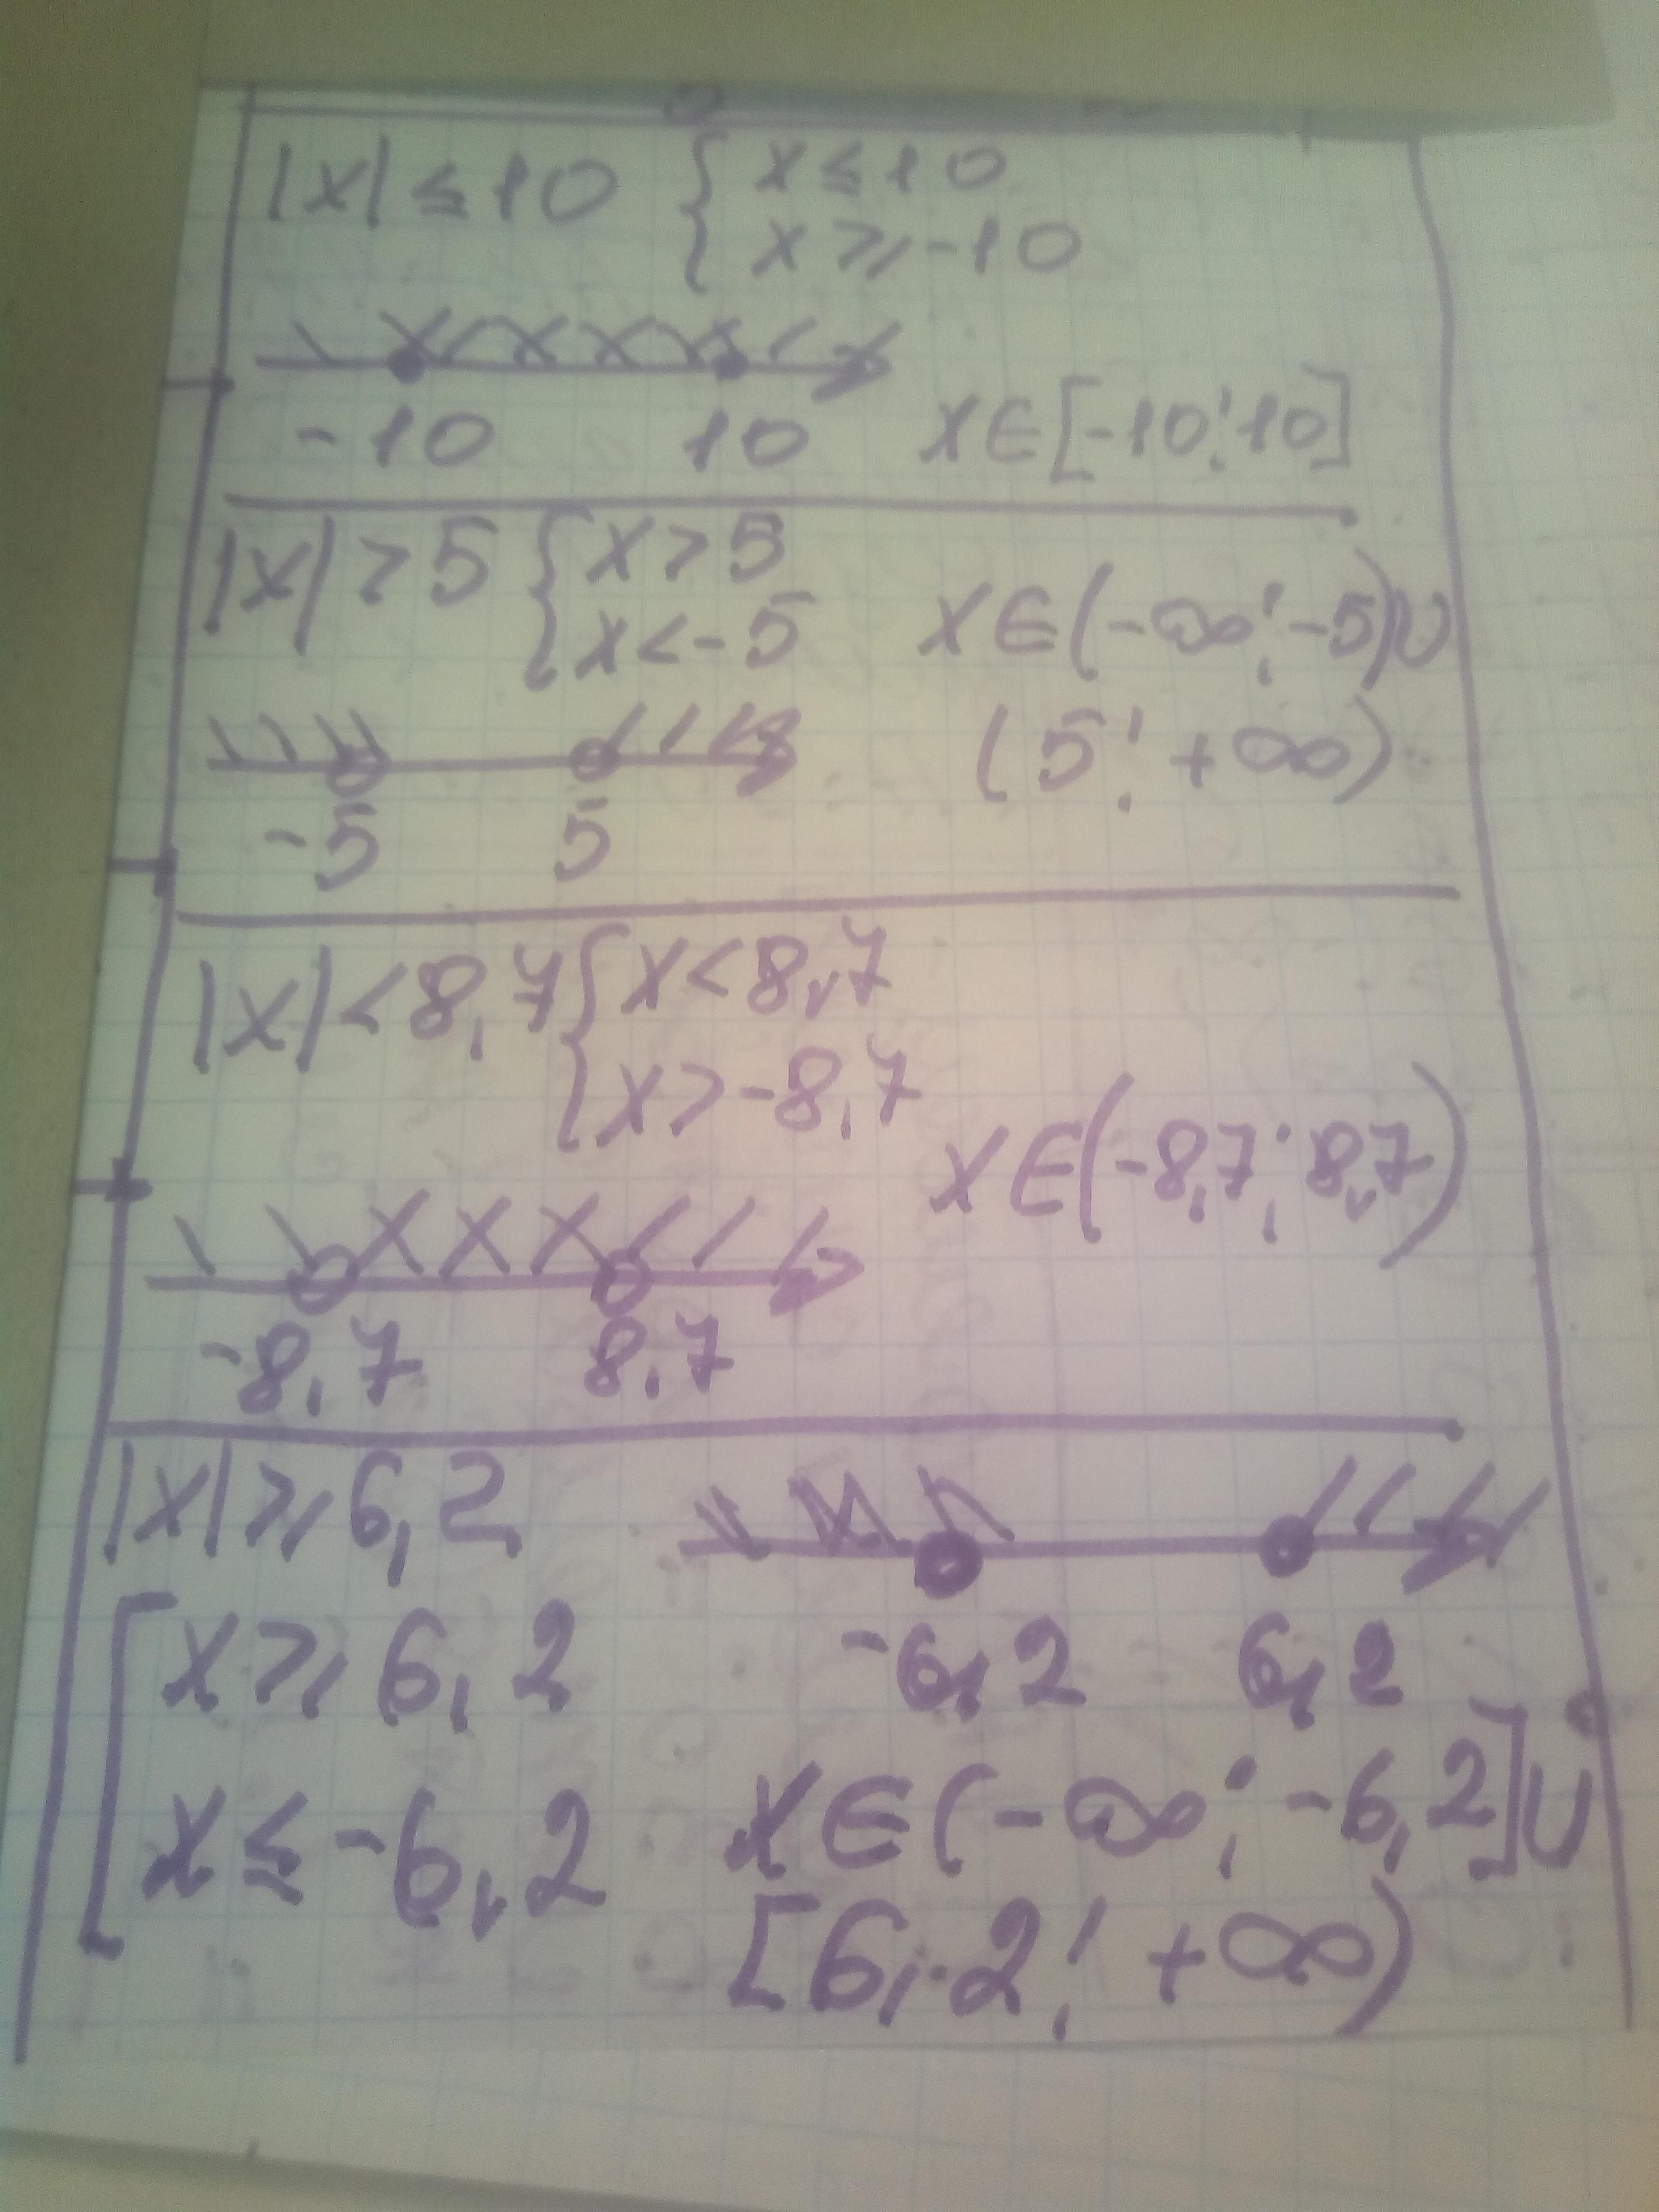 |x| ≤ 10 { x ≤ 10
x ≥ -10
-10 10 x ∈ [-10; 10]
|x| > 5 { x > 5
x < -5 x ∈ (-∞; -5) ∪
(5; +∞)
-5 5
|x| < 8,7 { x < 8,7
x > -8,7
x ∈ (-8,7; 8,7)
-8,7 8,7
|x| ≥ 6,2
[ x ≥ 6,2 -6,2 6,2
x ≤ -6,2 x ∈ (-∞; -6,2] ∪
[6,2; +∞)